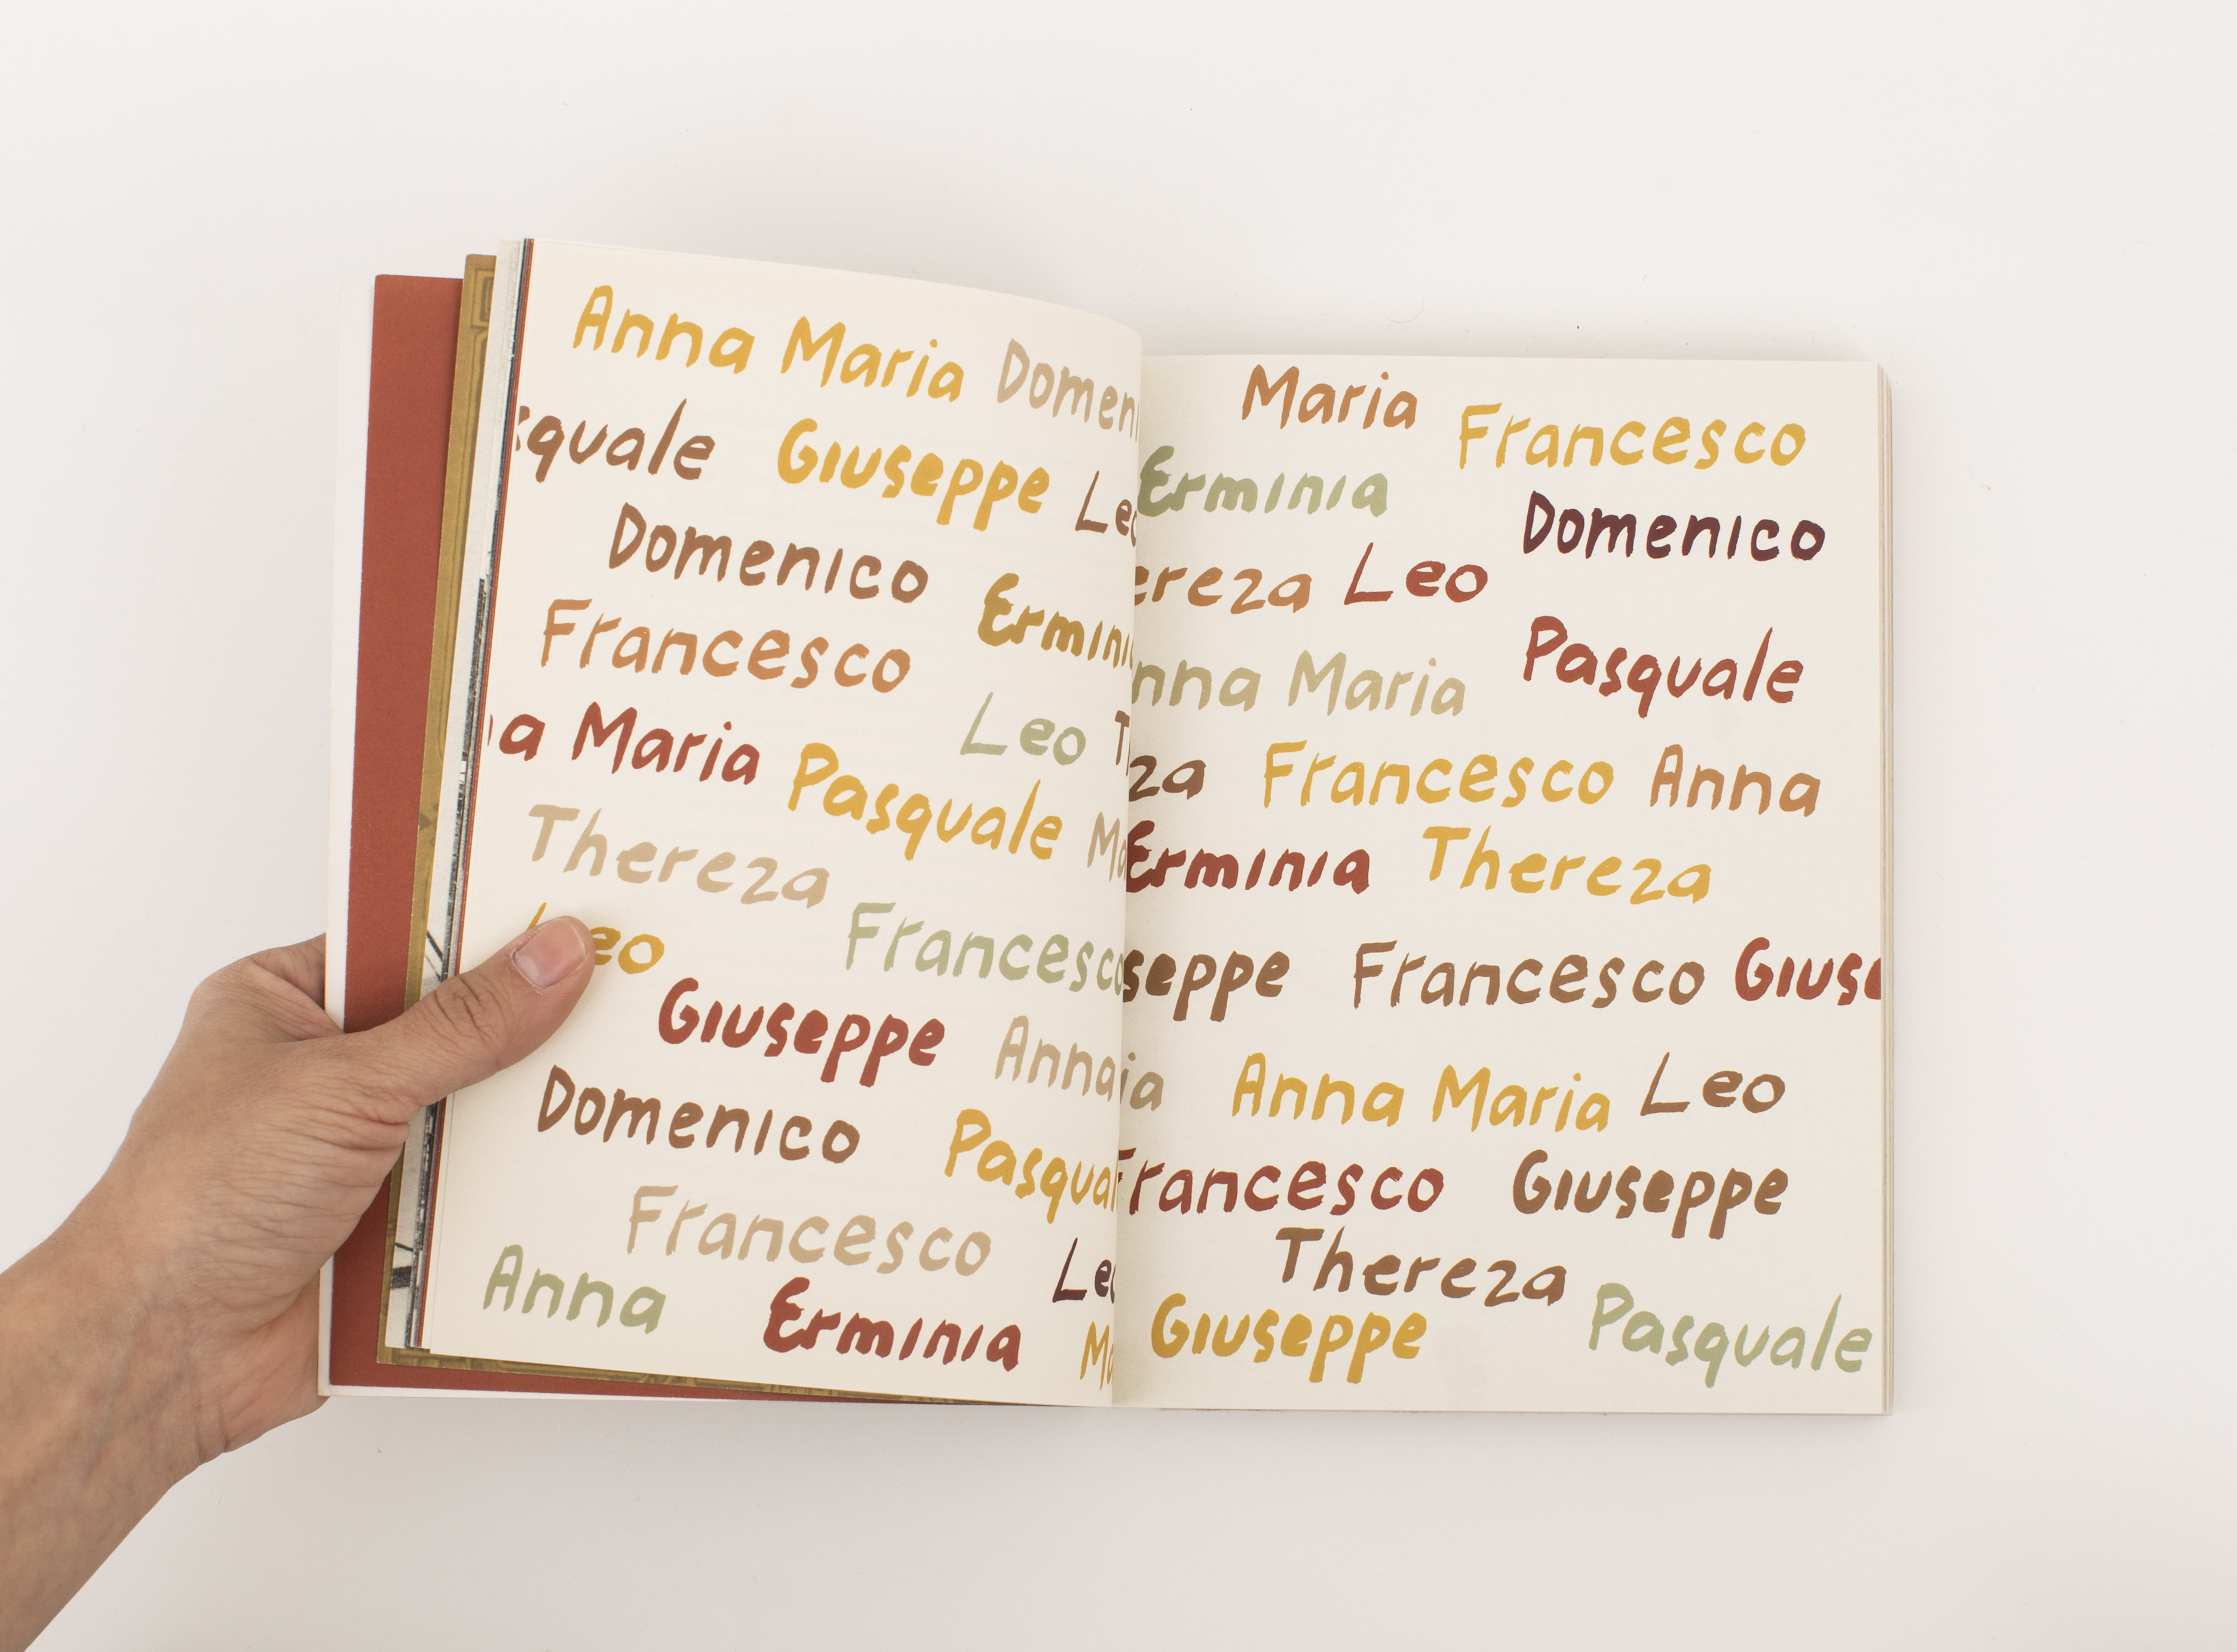 Anna Maria Domen
squale Giuseppe Leo
Domenico Ermini
Francesco
Leo T
a Maria Pasquale Ma
Thereza
Leo Francesco
Giuseppe Anna
Domenico Pasqual
Francesco Leo
Anna Erminia Ma
Maria Francesco
Erminia Domenico
ereza Leo
nna Maria Pasquale
za Francesco Anna
Erminia Thereza
seppe Francesco Giuse
ia Anna Maria Leo
Francesco Giuseppe
Thereza
Giuseppe Pasquale